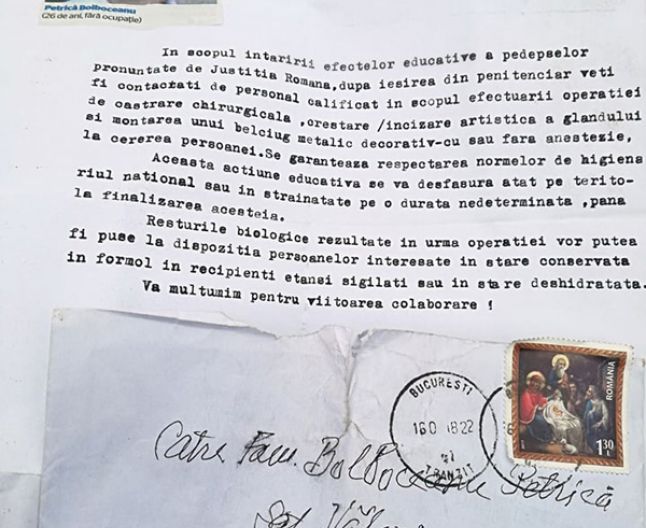 Petrică Bolboceanu
(26 de ani, fără ocupație)
In scopul intaririi efectelor educative a pedepselor
pronuntate de Justitia Romana,dupa iesirea din penitenciar veti
fi contactati de personal calificat in scopul efectuarii operatiei
de castrare chirurgicala ,crestare /incizare artistica a glandului
si montarea unui belciug metalic decorativ-cu sau fara anestezie,
la cererea persoanei.Se garanteaza respectarea normelor de higiena
Aceasta actiune educativa se va desfasura atat pe terito-
riul national sau in strainatate pe o durata nedeterminata ,pana
la finalizarea acesteia.
Resturile biologice rezultate in urma operatiei vor putea
fi puse la dispozitia persoanelor interesate in stare conservata
in formol in recipienti etansi sigilati sau in stare deshidratata.
Va multumim pentru viitoarea colaborare !
BUCURESTI
TRANZIT
ROMÂNIA
1,30 L
Către Fam. Bolboceanu Petrică